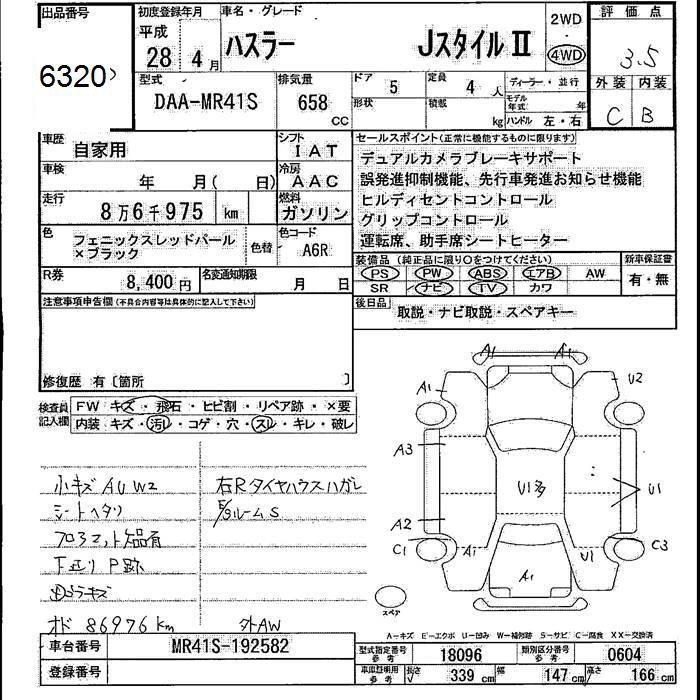 出品番号
6320
初度登録年月
平成
28 年 4 月
車名・グレード
ハスラー JスタイルⅡ
2WD
4WD
評価点
3.5
外装 内装
C B
型式
DAA-MR41S
排気量
658 CC
ドア 5
形状
定員 4 人
積載 kg
ディーラー・並行
モデル年式 年
ハンドル 左・右
車歴
自家用
シフト
IAT
車検
年 月( 日)
冷房
AAC
走行
8万6千975 km
燃料
ガソリン
色
フェニックスレッドパール
×ブラック
色替
色コード
A6R
R券
8,400円
名変通知期限
月 日
セールスポイント(正常に機能するものに限ります)
デュアルカメラブレーキサポート
誤発進抑制機能、先行車発進お知らせ機能
ヒルディセントコントロール
グリップコントロール
運転席、助手席シートヒーター
装備品(純正品に限り○をつけてください)
PS PW ABS エアB AW
SR ナビ TV カワ
新車保証書
有・無
後日品
取説・ナビ取説・スペアキー
注意事項申告欄(不具合内容等は具体的に記入して下さい)
修復歴 有〔箇所 〕
検査員
記入欄
FW キズ・飛石・ヒビ割・リペア跡・×要
内装 キズ・汚レ・コゲ・穴・スレ・キレ・破レ
小キズ AU W2
シートヘタリ
フロアマット欠品有
下廻り P跡
オド 86976km
右Rタイヤハウスハガレ
外AW
A1 A1
A1 U2
A3
U1多
U1
A2
C1 A1 U1 C3
A1
スペア
A-キズ E-エクボ U-凹み W-補修跡 S-サビ C-腐食 XX-交換済
車台番号
MR41S-192582
登録番号
型式指定番号
参考
18096
類別区分番号
参考
0604
車庫証明用
参考
長さ 339 cm
幅 147 cm
高さ 166 cm